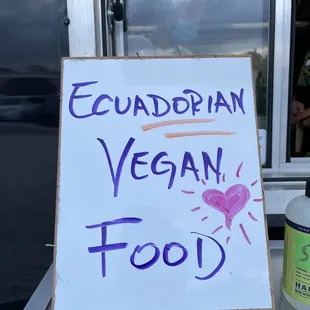 ECUADORIAN
VEGAN
FOOD